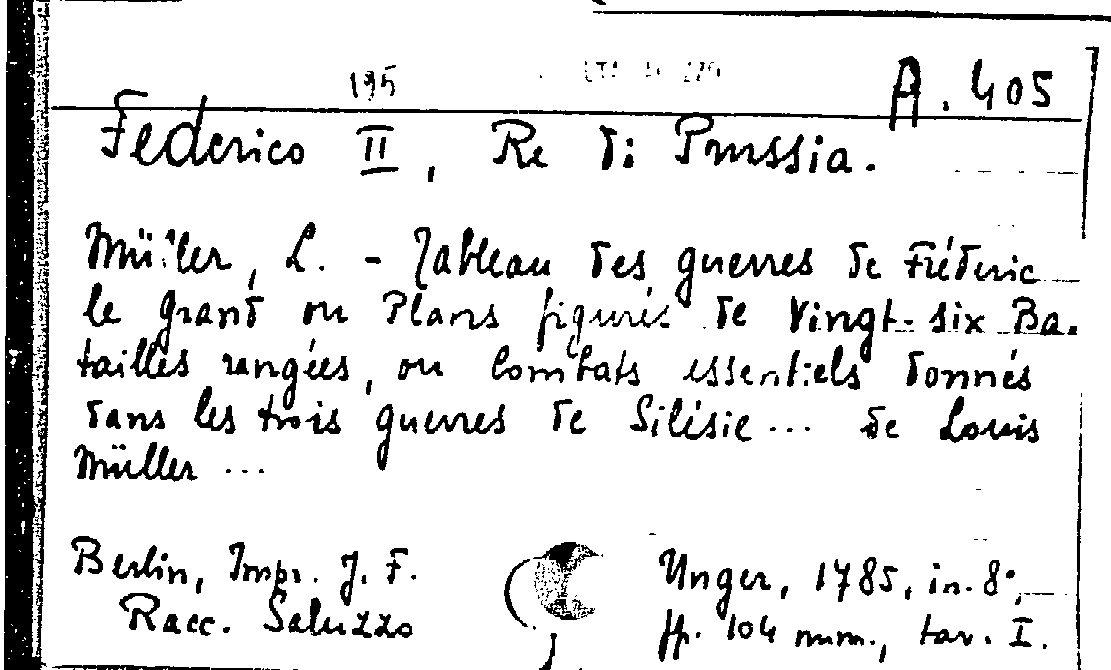 195
A. 405
Federico II, Re di Prussia.
Müller, L. - Tableau des guerres de Fréderic
le Grand ou Plans figurés de Vingt-six Ba-
tailles rangées, ou Combats essentiels donnés
dans les trois guerres de Silésie ... de Louis
Müller ...
Berlin, Impr. J. F. Unger, 1785, in-8°,
Racc. Saluzzo ff. 104 num., tav. I.